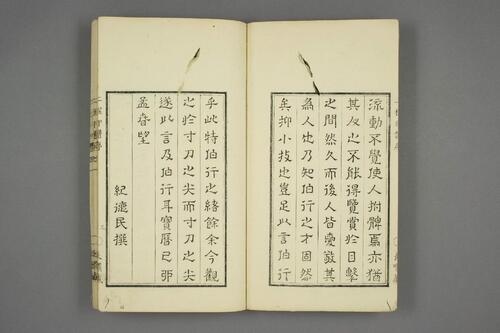 流動不覺使人拊髀焉亦猶
其人之不能得覽賞於目擊
之間然久而後人皆愛敬其
為人也乃知伯行之才固然
矣抑小技也豈足以言伯行
乎此特伯行之緒餘余今觀
之於寸刀之尖而寸刀之尖
遂此言及伯行耳寶曆己卯
孟春望
紀德民撰